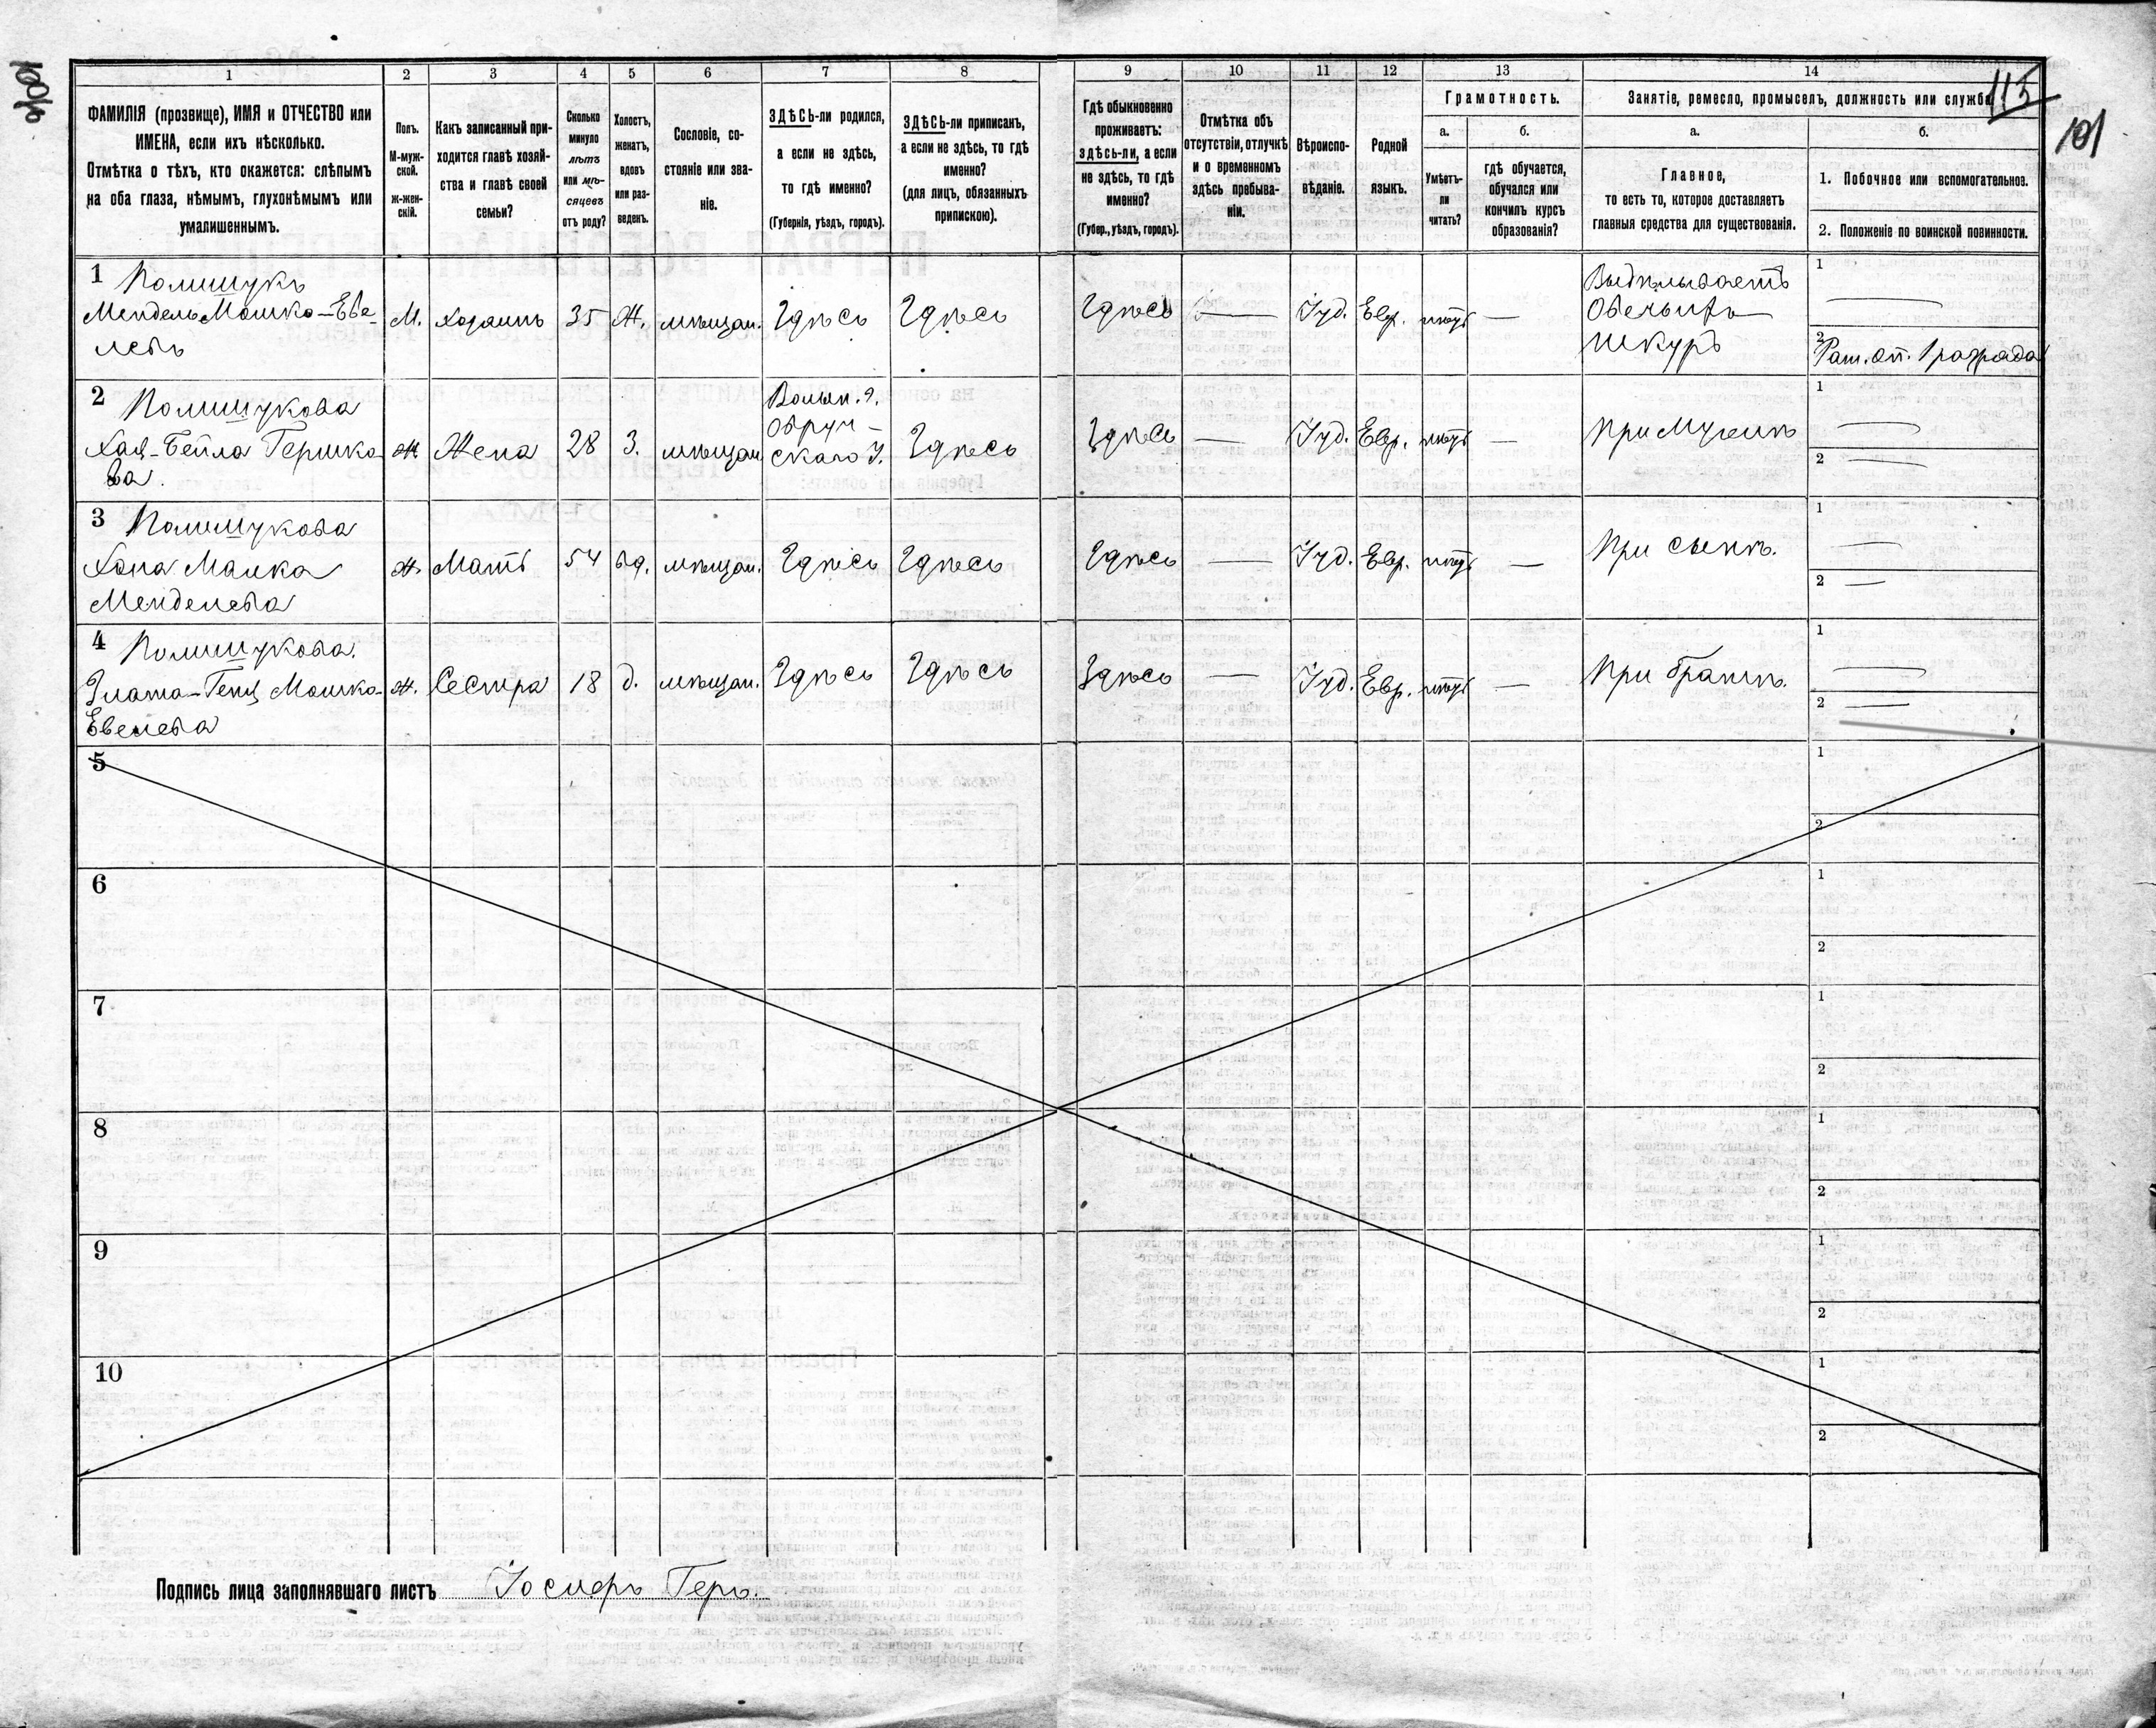 100об
115
101
1
2
3
4
5
6
7
8
9
10
11
12
13
14
ФАМИЛІЯ (прозвище), ИМЯ и ОТЧЕСТВО или
ИМЕНА, если ихъ нѣсколько.
Отмѣтка о тѣхъ, кто окажется: слѣпымъ
на оба глаза, нѣмымъ, глухонѣмымъ или
умалишеннымъ.
Полъ.
М-муж-
ской.
ж-жен-
скій.
Какъ записанный при-
ходится главѣ хозяй-
ства и главѣ своей
семьи?
Сколько
минуло
лѣтъ
или мѣ-
сяцевъ
отъ роду?
Холостъ,
женатъ,
вдовъ
или раз-
веденъ.
Сословіе, со-
стояніе или зва-
ніе.
ЗДѢСЬ-ли родился,
а если не здѣсь,
то гдѣ именно?
(Губернія, уѣздъ, городъ).
ЗДѢСЬ-ли приписанъ,
а если не здѣсь, то гдѣ
именно?
(для лицъ, обязанныхъ
припискою).
Гдѣ обыкновенно
проживаетъ:
здѣсь-ли, а если
не здѣсь, то гдѣ
именно?
(Губер., уѣздъ, городъ).
Отмѣтка объ
отсутствіи, отлучкѣ
и о временномъ
здѣсь пребыва-
ніи.
Вѣроиспо-
вѣданіе.
Родной
языкъ.
Грамотность.
а.
Умѣетъ-
ли
читать?
б.
гдѣ обучается,
обучался или
кончилъ курсъ
образованія?
Занятіе, ремесло, промыселъ, должность или служба
а.
Главное,
то есть то, которое доставляетъ
главныя средства для существованія.
б.
1. Побочное или вспомогательное.
2. Положеніе по воинской повинности.
1 Полищукъ
Мендель Мошко-Еве-
левъ
М.
Хозяинъ
35
Ж.
мѣщан.
Здѣсь
Здѣсь
Здѣсь
—
Іуд.
Евр.
—
Выдѣлываетъ
Овечьихъ
шкуръ
1 —
2 Рат. оп. 1 разряда
2 Полищукова
Хая-Бейла Гершко
ва.
Ж
Жена
28
З.
мѣщан.
Волын. г.
Овруч-
скаго У.
Здѣсь
Здѣсь
—
Іуд.
Евр.
—
При Мужѣ
1 —
2 —
3 Полищукова
Хана Малка
Менделева
Ж.
Мать
54
вд.
мѣщан.
Здѣсь
Здѣсь
Здѣсь
—
Іуд.
Евр.
—
При сынѣ.
1 —
2 —
4 Полищукова.
Злата-Генц Мошко-
Евелева
Ж.
Сестра
18
д.
мѣщан.
Здѣсь
Здѣсь
Здѣсь
—
Іуд.
Евр.
—
При братѣ.
1 —
2 —
5
1
2
6
1
2
7
1
2
8
1
2
9
1
2
10
1
2
Подпись лица заполнявшаго листъ Іосифъ Геръ.